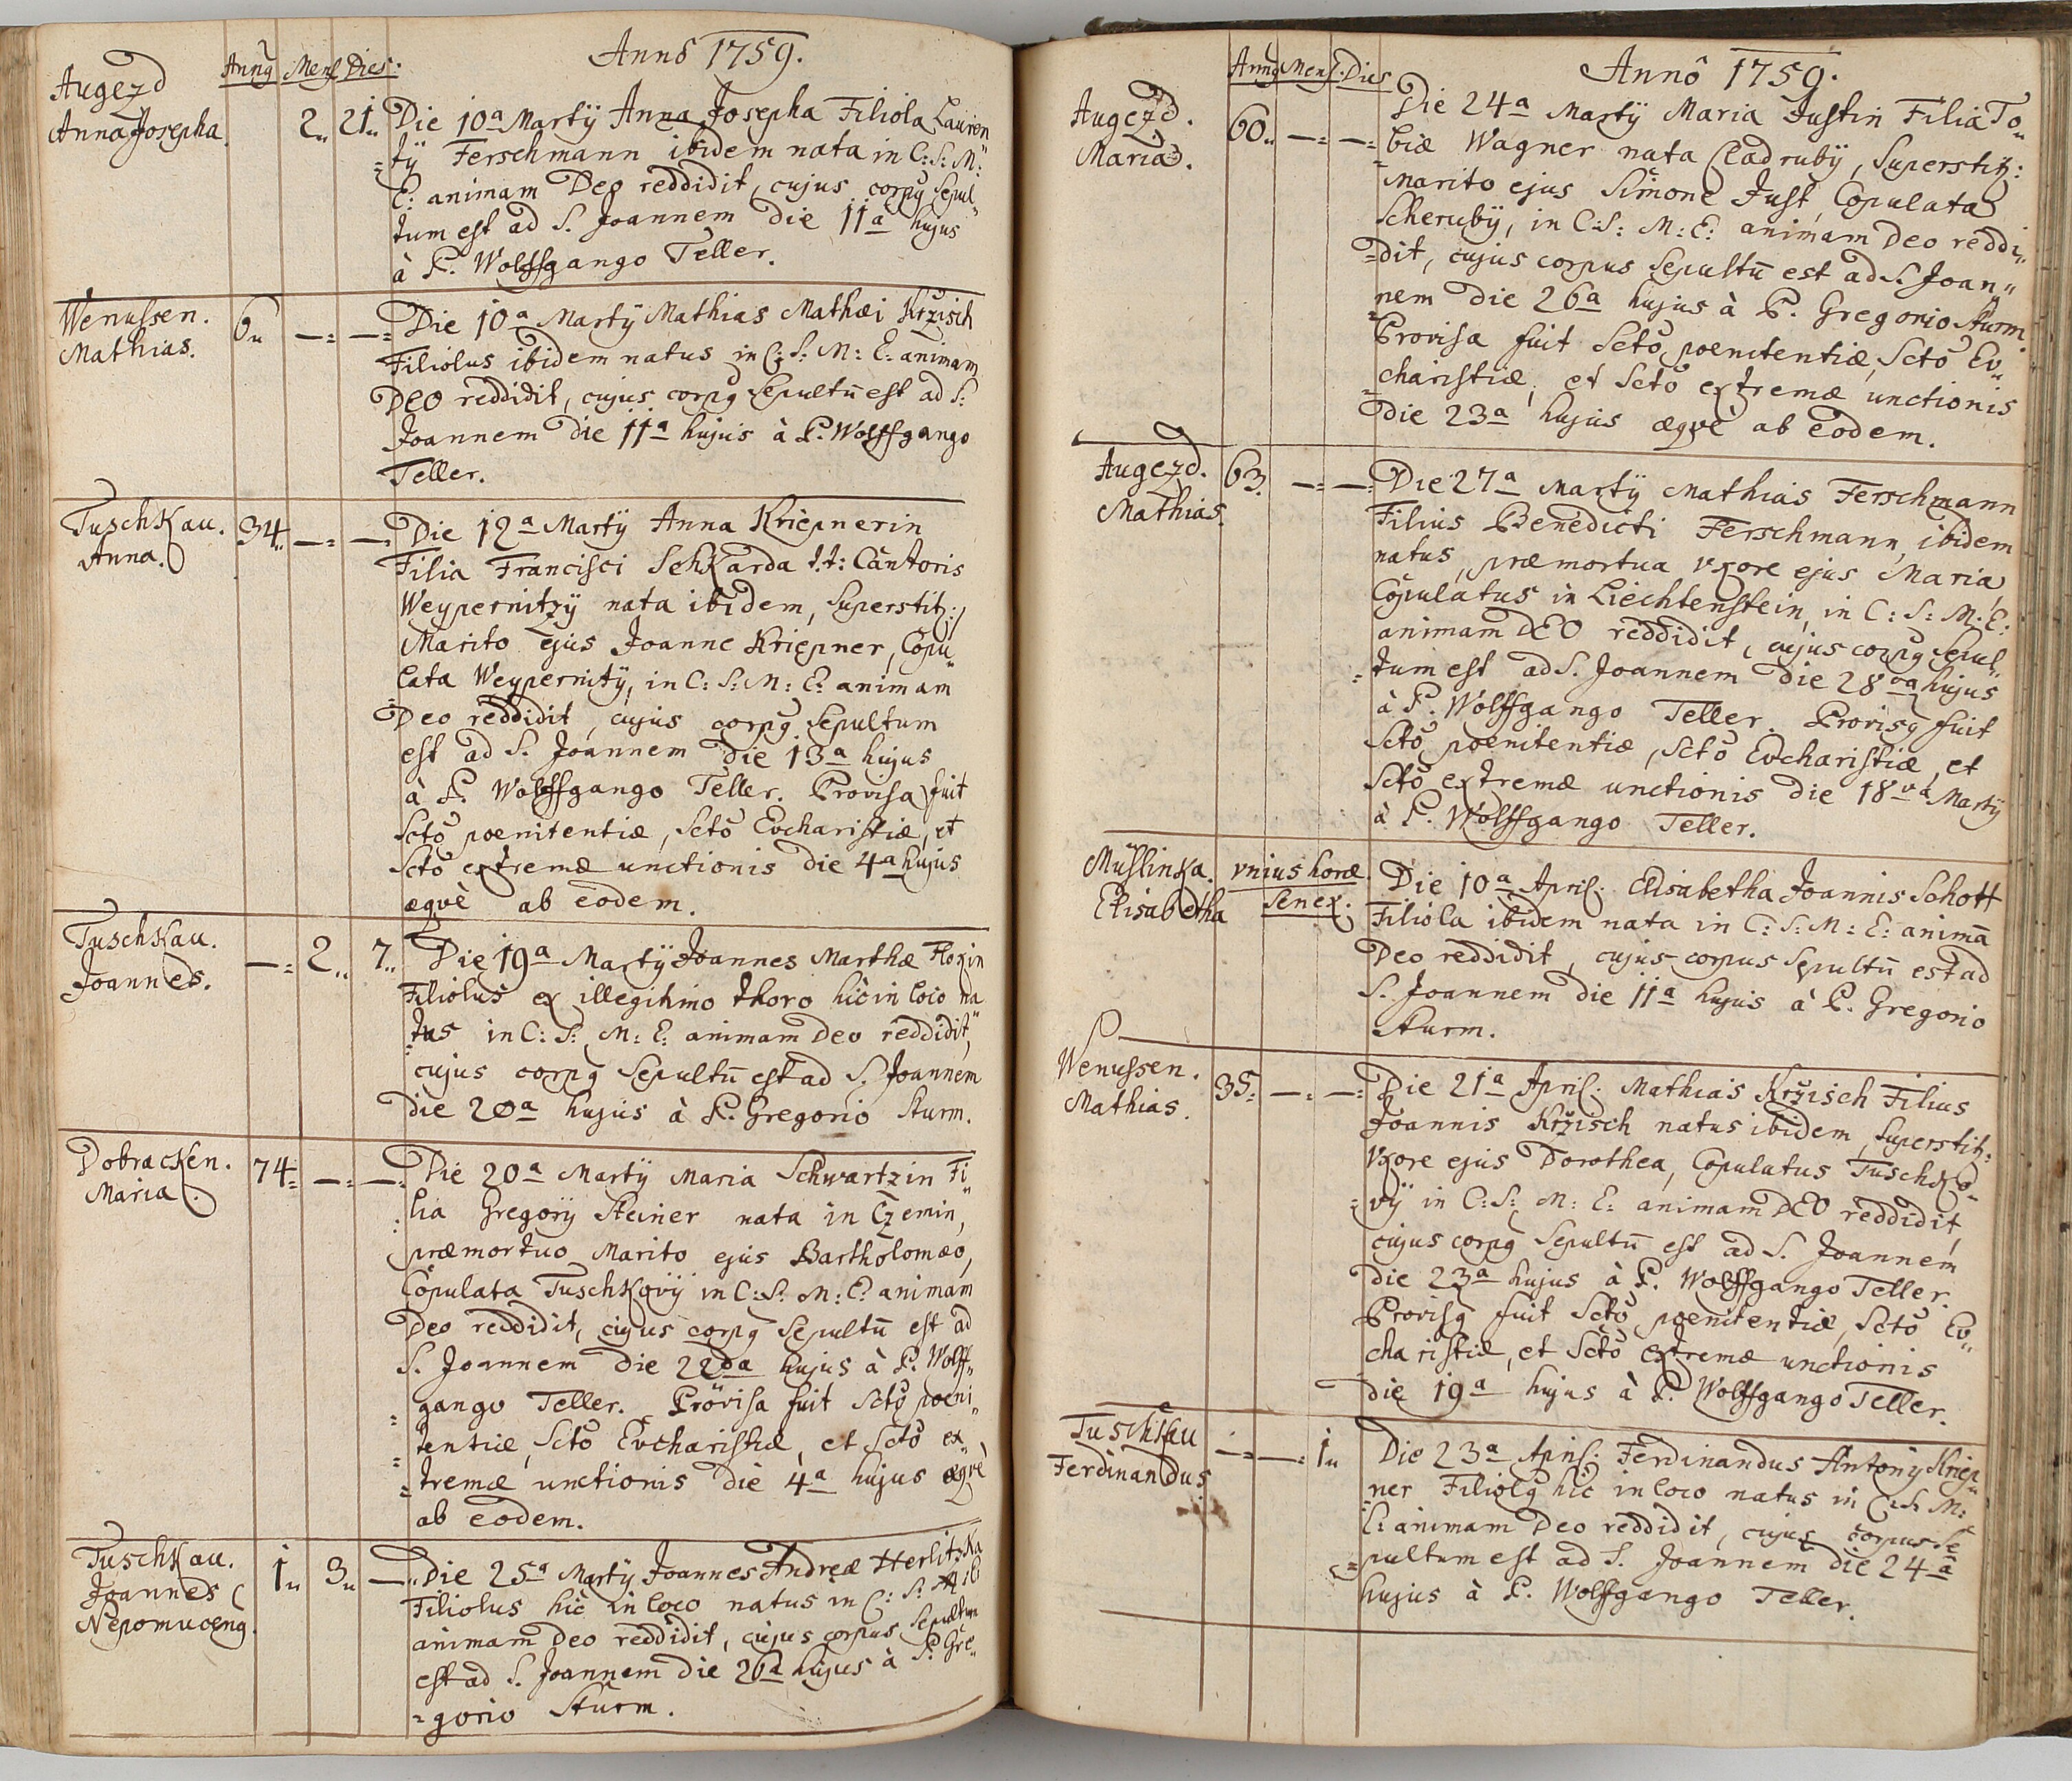 Annô 1759.
Annꝯ Mens Dies:
Augezd
Anna Josepha.
2,, 21,,
Die 10a Martÿ Anna Josepha Filiola Lauren„
tÿ Ferschmann ibidem nata in C: S: M:
E: animam Deo reddidit, cujus corpꝯ Sepul„
tum est ad S. Joannem die 11a hujus
à P. Wolffgango Teller.
Wenussen.
Mathias.
6,, —: —:
Die 10a Martÿ Mathias Mathæi Kržisch
Filiolus ibidem natus in C: S: M: E: animam
DEO reddidit, cujus corpꝯ Sepultū est ad S:
Joannem die 11a hujus à P. Wolffgango
Teller.
Tuschkau.
Anna.
34,, —: —:
Die 12a Martÿ Anna Kriepnerin
Filia Francisci Sehkarda t.t: Cantoris
Weypernitzÿ nata ibidem, Superstit:
Marito ejus Joanne Kriepner, Copu„
lata Weypernitÿ, in C: S: M: E: animam
Deo reddidit, cujus corpꝯ Sepultum
est ad S. Joannem die 13a hujus
à P. Wolffgango Teller. Provisa fuit
Scto poenitentiæ, Scto Evcharistiæ, et
Scto extremæ unctionis die 4a hujus
æqvè ab eodem.
Tuschkau.
Joannes.
—: 2,, 7,,
Die 19a Martÿ Joannes Marthæ Floxin
Filiolus ex illegitimo thoro hic in loco na
tus in C: S: M: E: animam Deo reddidit,
cujus corpꝯ Sepultū est ad S. Joannem
die 20a hujus à P. Gregorio Sturm.
Dobracken.
Maria.
74: —: —:
Die 20a Martÿ Maria Schwartzin Fi„
lia Gregorÿ Steiner nata in Czemin,
præmortuo Marito ejus Bartholomæo,
Copulata Tuschkovÿ in C: S: M: E: animam
Deo reddidit, cujus corpꝯ Sepultū est ad
S. Joannem die 22da hujus à P. Wolff„
gango Teller. Provisa fuit Scto poeni„
tentiæ, Scto Evcharistiæ, et Scto ex„
tremæ unctionis die 4a hujus æqvè
ab eodem.
Tuschkau.
Joannes
Nepomucenꝯ.
1,, 3,, —:
Die 25a Martÿ Joannes Andreæ Herlitzka
Filiolus hic in loco natus in C: S: M: E:
animam Deo reddidit, cujus corpus Sepultum
est ad S. Joannem die 26a hujus à P. Gre„
gorio Sturm.
Annô 1759.
Annꝯ Mens: Dies
Augezd.
Maria.
60,, —: —:
Die 24a Martÿ Maria Justin Filia To„
biæ Wagner nata Cladrubÿ, Superstit:
Marito ejus Simone Just, Copulata
Scherubÿ, in C: S: M: E: animam Deo reddi„
dit, cujus corpus Sepultū est ad S. Joan„
nem die 26a hujus à P. Gregorio Sturm.
Provisa fuit Scto poenitentiæ, Scto Ev„
charistiæ, et Scto extremæ unctionis
die 23a hujus æqvè ab eodem.
Augezd.
Mathias.
63. —: —:
Die 27a Martÿ Mathias Ferschmann
Filius Benedicti Ferschmann, ibidem
natus, præmortua vxore ejus Maria,
Copulatus in Liechtenstein, in C: S: M: E:
animam DEO reddidit, cujus corpꝯ Sepul„
tum est ad S. Joannem die 28va hujus
à P. Wolffgango Teller. Provisꝯ fuit
Scto poenitentiæ, Scto Evcharistiæ, et
Scto extremæ unctionis die 18va Martÿ
à P. Wolffgango Teller.
Müslinka.
Elisabetha
vnius horæ
senex.
Die 10a April: Elisabetha Joannis Schott
Filiola ibidem nata in C: S: M: E: animā
Deo reddidit, cujus corpus Sepultū est ad
S. Joannem die 11a hujus à P. Gregorio
Sturm.
Wenussen.
Mathias.
35: —: —:
Die 21a April: Mathias Kržisch Filius
Joannis Kržisch natus ibidem, Superstit:
Vxore ejus Dorothea, Copulatus Tuschko„
vÿ in C: S: M: E: animam DEO reddidit,
cujus corpꝯ Sepultū est ad S. Joannem
die 23a hujus à P. Wolffgango Teller.
Provisꝯ fuit Scto poenitentiæ, Scto Ev„
charistiæ, et Scto extremæ unctionis
die 19a hujus à P. Wolffgango Teller.
Tuschkau
Ferdinandus
—: —: 1,,
Die 23a April: Ferdinandus Antonÿ Kriep„
ner Filiolꝯ hic in loco natus in C: S: M:
E: animam Deo reddidit, cujus corpus Se
pultum est ad S. Joannem die 24a
hujus à P. Wolffgango Teller.